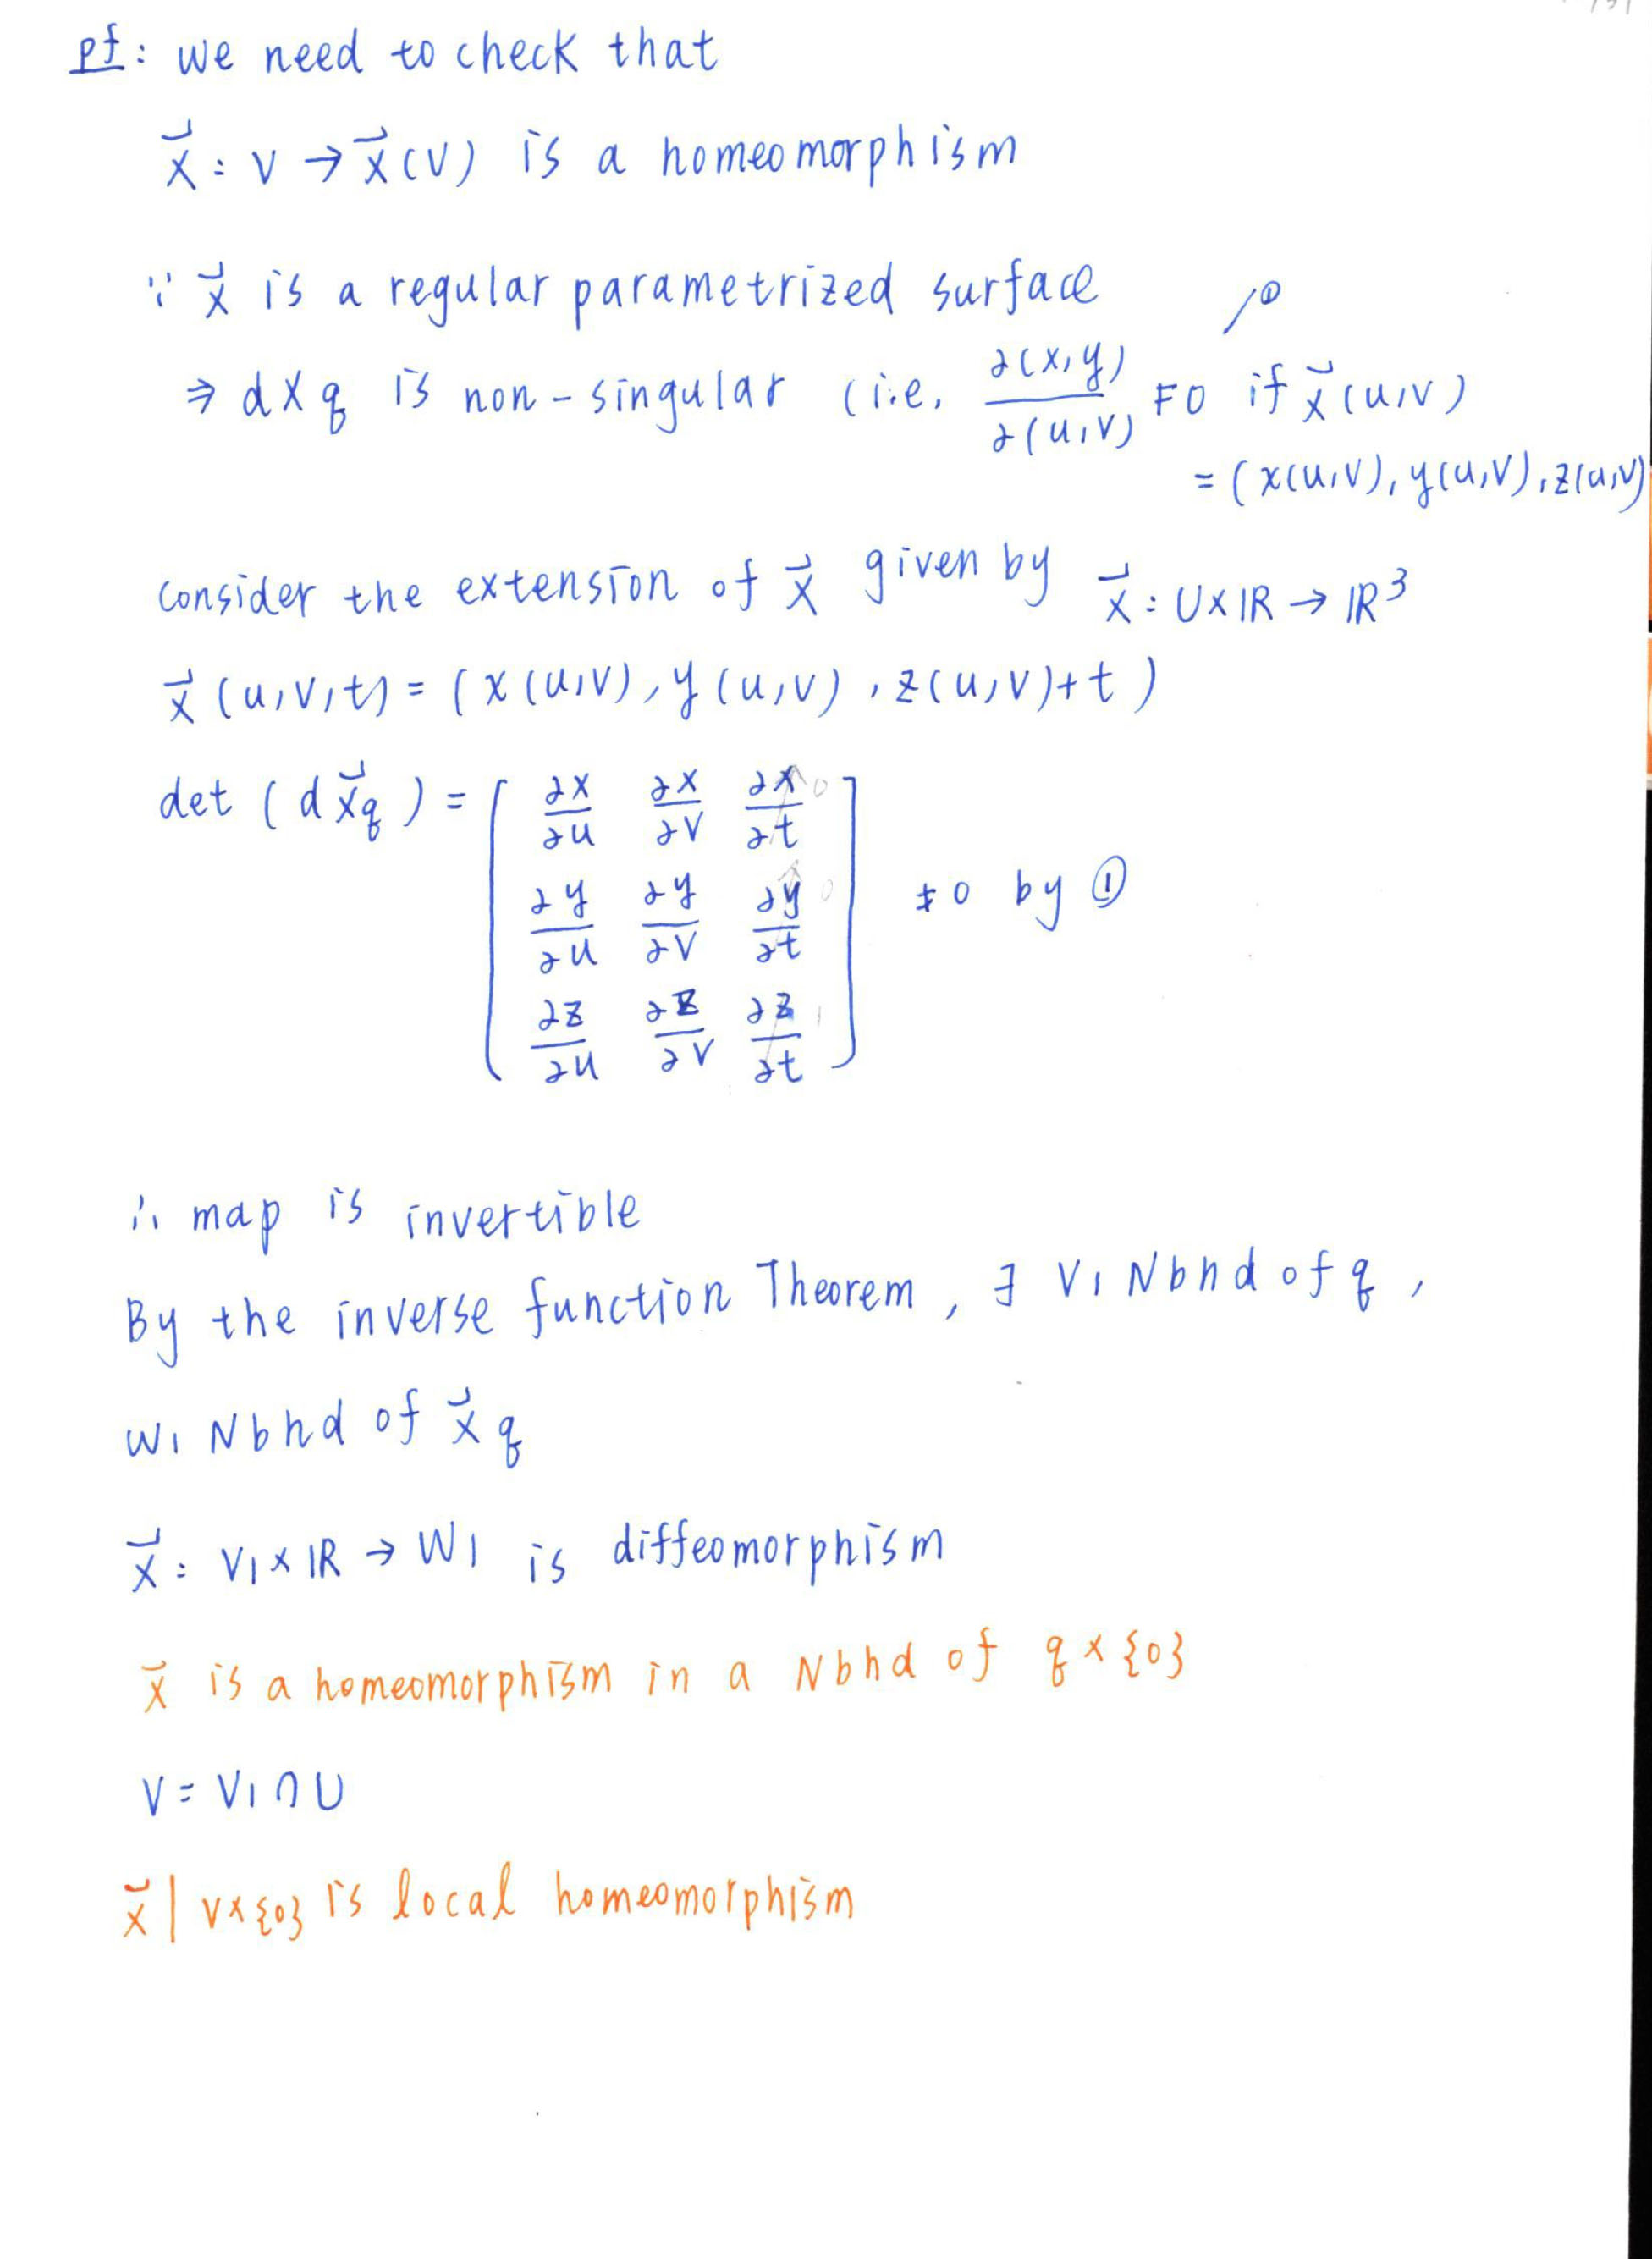 pf: we need to check that
x⃗: V → x⃗(V) is a homeomorphism
∵ x⃗ is a regular parametrized surface
①
⇒ dXq is non-singular (i.e. ∂(x,y)/∂(u,v) ≠0 if x⃗(u,v)
= (x(u,v), y(u,v), z(u,v)
consider the extension of x⃗ given by x⃗: U×ℝ → ℝ³
x⃗(u,v,t) = (x(u,v), y(u,v), z(u,v)+t)
det (dx⃗q) = [ ∂x/∂u ∂x/∂v ∂x/∂t 0
∂y/∂u ∂y/∂v ∂y/∂t 0 ] ≠0 by ①
∂z/∂u ∂z/∂v ∂z/∂t 1
∴ map is invertible
By the inverse function Theorem, ∃ V1 Nbhd of q,
W1 Nbhd of x⃗q
x⃗: V1×ℝ → W1 is diffeomorphism
x⃗ is a homeomorphism in a Nbhd of q×{0}
V = V1∩U
x⃗|V×{0} is local homeomorphism